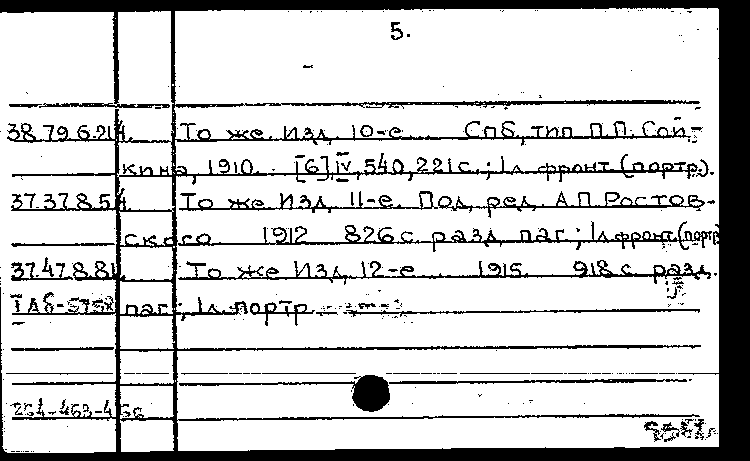 5.
38.79.6.214. То же. Изд. 10-е. ... Спб, тип П.П. Сой-
кина, 1910. [6], IV, 540, 221 с.; 1 л фронт. (портр.).
37.37.8.54. То же Изд. 11-е. Под. ред. А.П Ростов-
ского 1912 826 с. разд. паг.; 1 л фронт. (портр
37.47.8.81. То же Изд. 12-е ... 1915. 918 с разд.
паг.; 1 л. портр
254-463-4